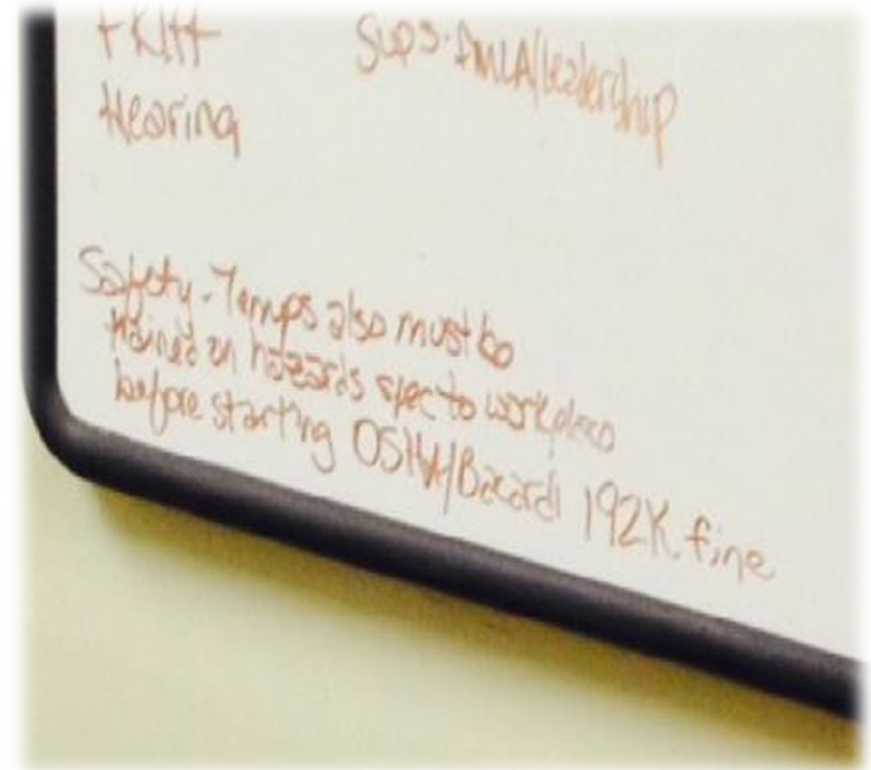 Sups. FMLA/Leadership
Hearing
Safety - Temps also must be
trained on hazards spec to workplace
before starting OSHA/Bacardi 192K fine